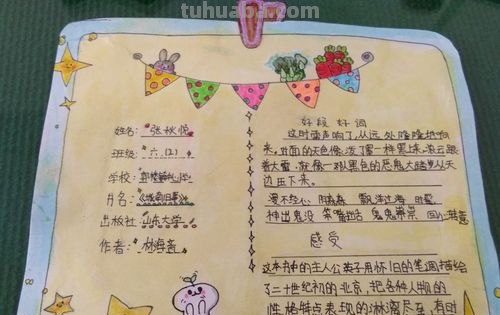 tuhuaba.com
姓名：张秋悦
班级：六.(2)
学校：
书名：《城南旧事》
出版社：山东大学
作者：林海音
好段 好词
这时雷声响了，从远处隆隆地响
来，对面的天色像泼了墨一样黑,浓云跟
着大雷，就像一队黑色的恶鬼大踏步从天
边压下来。
漫不经心 阴森森 飘洋过海
神出鬼没 鬼鬼祟祟 回心转意
感受
这本书中的主人公英子用怀旧的笔调描绘
了二十世纪初的北京，把各种人物的
性格特点表现的淋漓尽至，有时